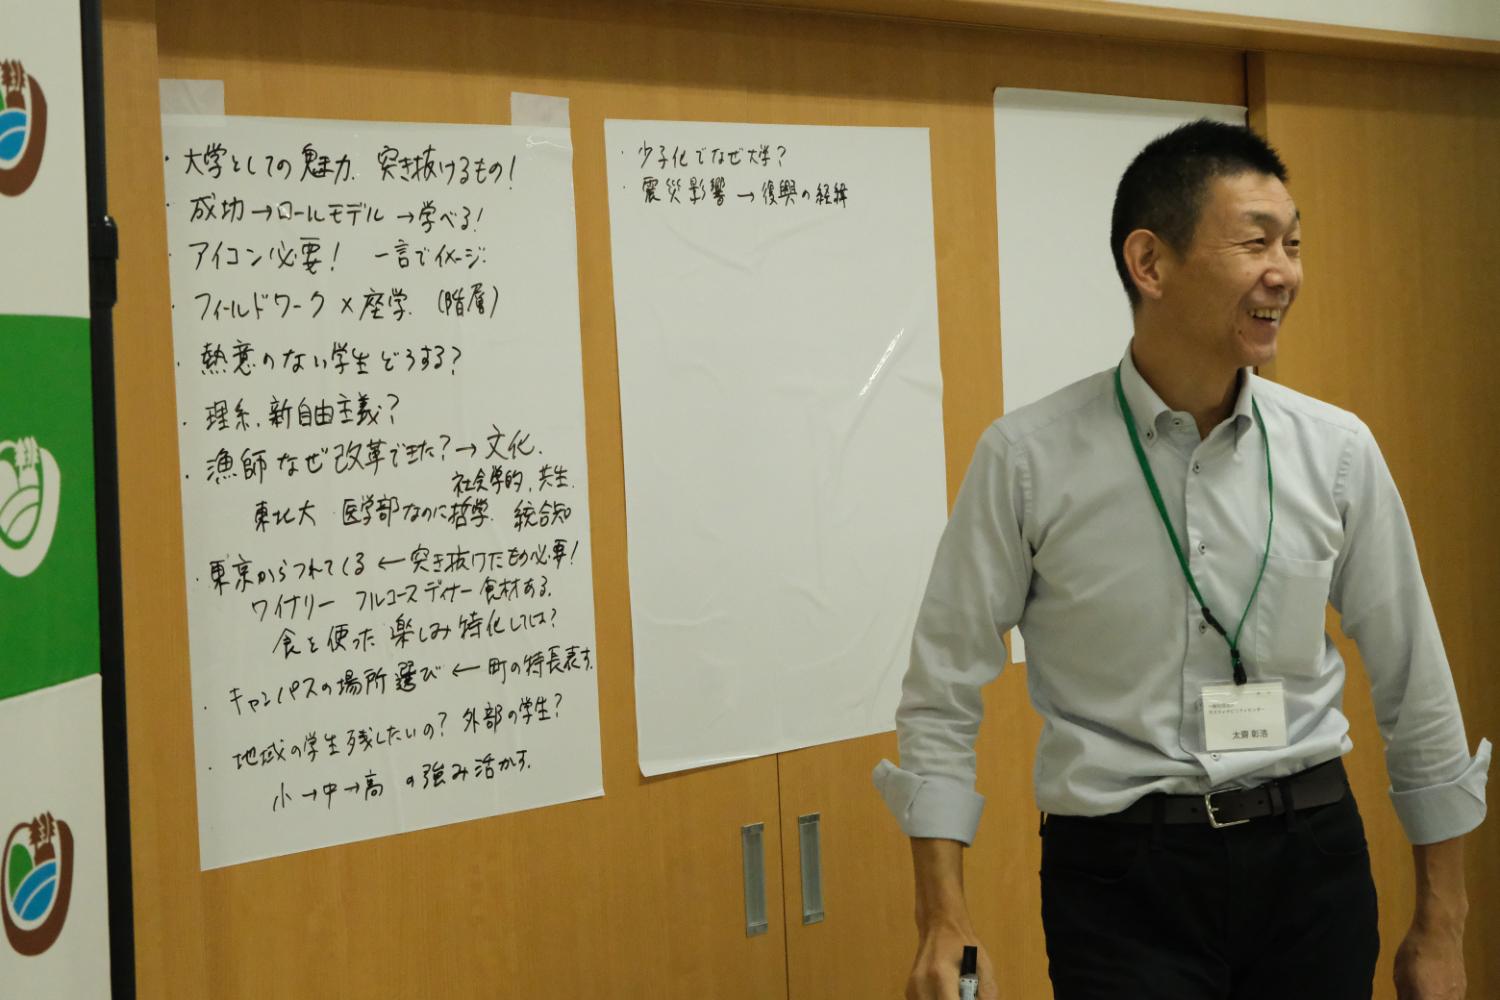 ・大学としての魅力．突き抜けるもの！
・成功→ロールモデル→学べる！
・アイコン必要！ 一言でイメージ：
・フィールドワーク×座学．（階層）
・熱意のない学生どうする？
・理系．新自由主義？
・漁師なぜ改革できた？→文化．
社会学的．共生．
東北大 医学部なのに哲学．統合知
・東京からつれてくる←突き抜けたもの必要！
ワイナリー フルコースディナー食材ある．
食を使った楽しみ特化しては？
・キャンパスの場所選び←町の特長表す．
・地域の学生残したいの？外部の学生？
小→中→高 の強み活かす．
・少子化でなぜ大学？
・震災影響→復興の経緯
一般社団法人
サスティナビリティセンター
太齋 彰浩